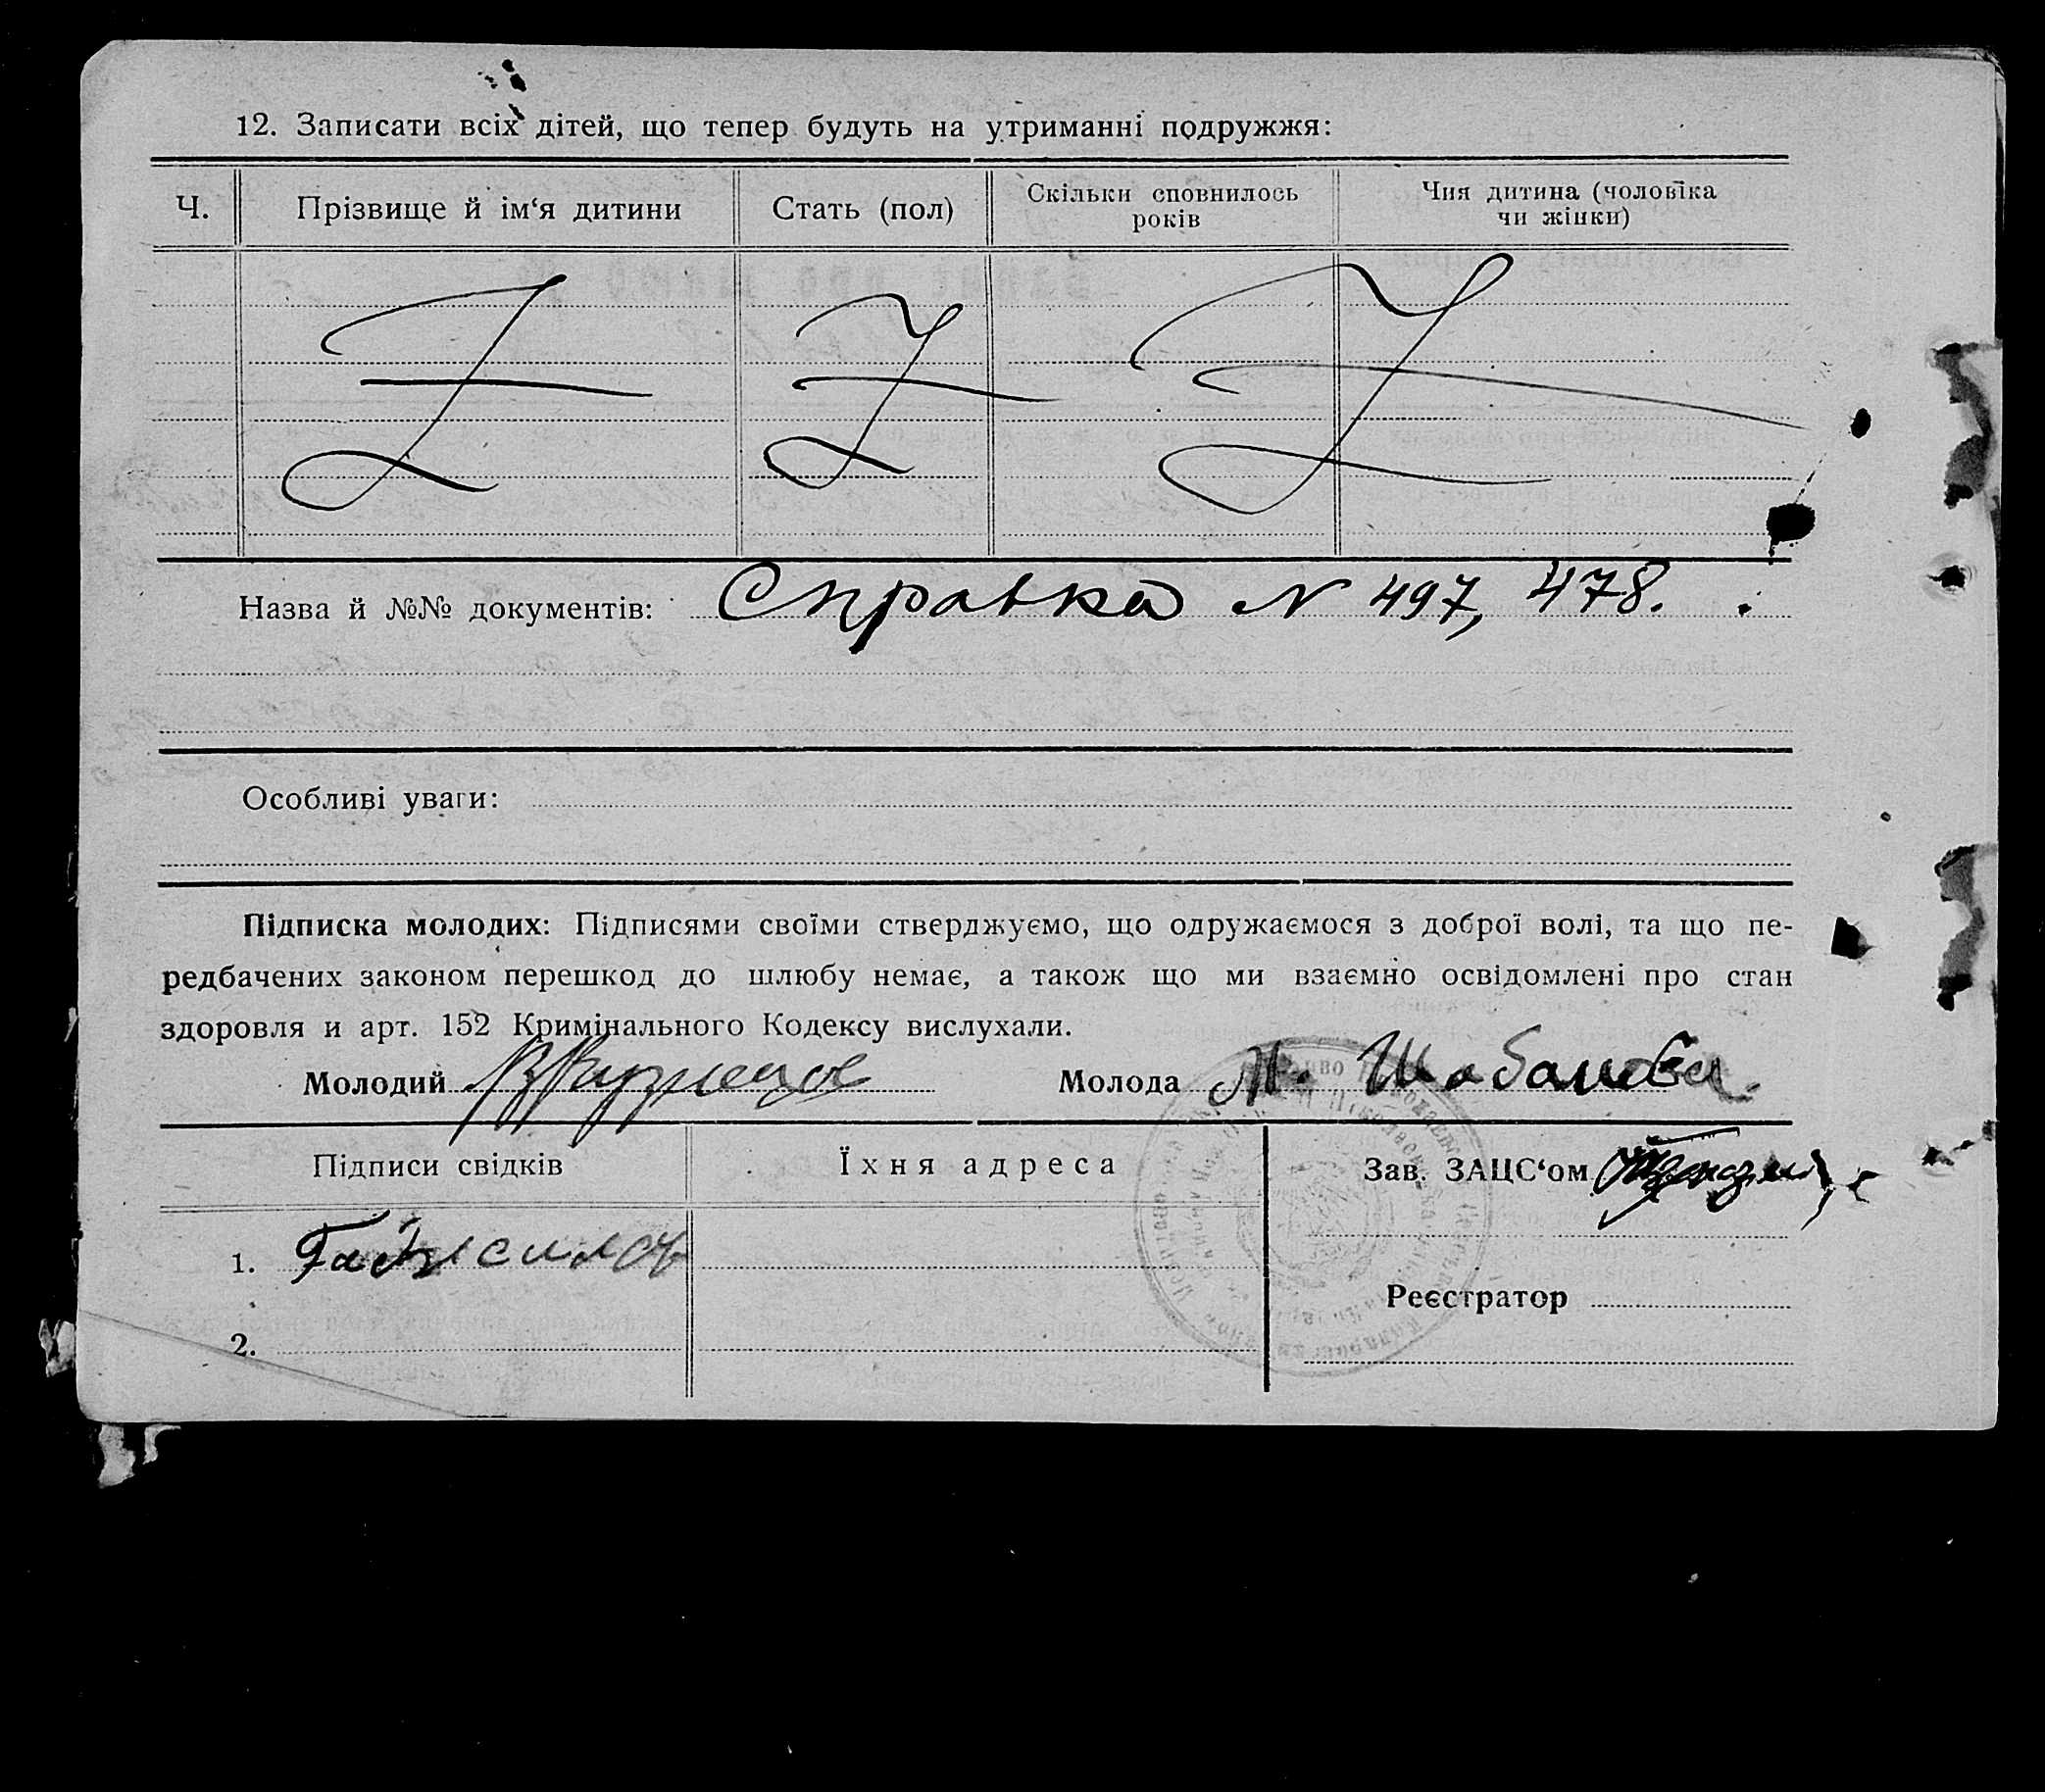 12. Записати всіх дітей, що тепер будуть на утриманні подружжя:
Ч.
Прізвище й ім‘я дитини
Стать (пол)
Скільки сповнилось
років
Чия дитина (чоловіка
чи жінки)
Назва й №№ документів: Справка N 497, 478.
Особливі уваги:
Підписка молодих: Підписями своїми стверджуємо, що одружаємося з доброї волі, та що пе-
редбачених законом перешкод до шлюбу немає, а також що ми взаємно освідомлені про стан
здоровля и арт. 152 Кримінального Кодексу вислухали.
Молодий
Молода М. Шабанова.
Підписи свідків
Їхня адреса
Зав. ЗАЦС‘ом
1.
Реєстратор
2.